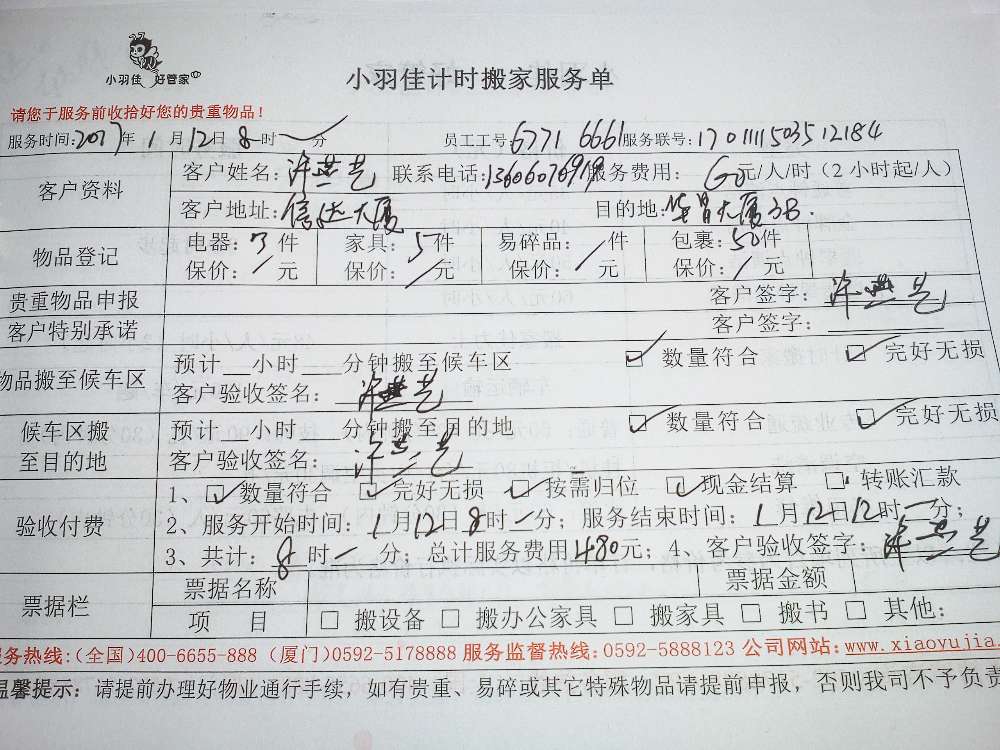 小羽佳 好管家
小羽佳计时搬家服务单
请您于服务前收拾好您的贵重物品！
服务时间：2017年1月12日8时 分 员工工号：6771 6661 服务联号：1701111503512184
客户资料 客户姓名： 联系电话： 服务费用：60元/人/时（2小时起/人）
客户地址：信达大厦 目的地：大厦3B.
物品登记 电器：7件 家具：5件 易碎品：/件 包裹：50件
保价：/元 保价：/元 保价：/元 保价：/元
贵重物品申报 客户签字：
客户特别承诺 客户签字：
物品搬至候车区 预计 小时 分钟搬至候车区 ☑ 数量符合 ☑ 完好无损
客户验收签名：
候车区搬至目的地 预计 小时 分钟搬至目的地 ☑ 数量符合 ☑ 完好无损
客户验收签名：
验收付费 1、☑数量符合 ☑完好无损 ☑按需归位 ☑现金结算 □转账汇款
2、服务开始时间：1月12日8时一分；服务结束时间：1月12日12时一分；
3、共计：8时一分；总计服务费用480元；4、客户验收签字：
票据栏 票据名称 票据金额
项 目 □ 搬设备 □ 搬办公家具 □ 搬家具 □ 搬书 □ 其他：
务热线：（全国）400-6655-888（厦门）0592-5178888 服务监督热线：0592-5888123 公司网站：www.xiaoyujia
温馨提示：请提前办理好物业通行手续，如有贵重、易碎或其它特殊物品请提前申报，否则我司不予负责